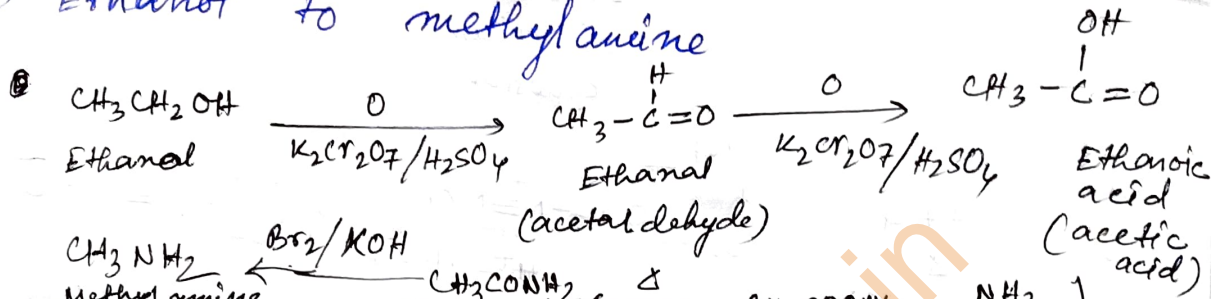 to methylamine
CH3CH2OH O K2Cr2O7/H2SO4 CH3-C=O H O K2Cr2O7/H2SO4 CH3-C=O OH
Ethanol Ethanal (acetaldehyde) Ethanoic acid (acetic acid)
CH3NH2 Br2/KOH CH3CONH2 Δ NH3
in